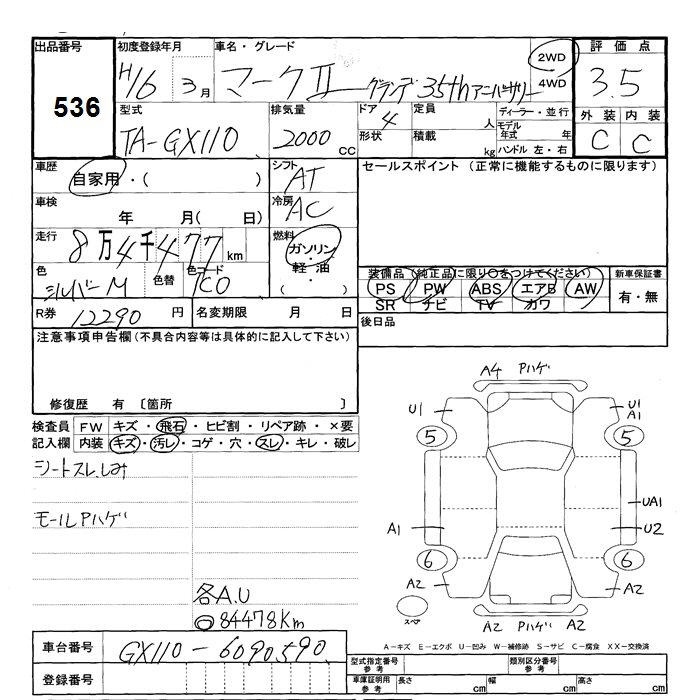 出品番号
536
初度登録年月
H16 3月
車名・グレード
マークII グランデ 35thアニバーサリー
2WD
4WD
評価点
3.5
外装 内装
C C
型式
TA-GX110
排気量
2000 CC
ドア 4
形状
定員 人
積載 kg
ディーラー・並行
モデル年式 年
ハンドル 左・右
車歴
自家用・( )
シフト
AT
セールスポイント (正常に機能するものに限ります)
車検
年 月( 日)
冷房
AC
走行
8万4千477km
燃料
ガソリン・
軽油・
( )
色
シルバーM
色替
色コード
1C0
装備品(純正品に限り○をつけてください)
PS PW ABS エアB AW
SR ナビ TV カワ
新車保証書
有・無
R券 12290 円
名変期限 月 日
後日品
注意事項申告欄(不具合内容等は具体的に記入して下さい)
修復歴 有 〔箇所 〕
検査員 FW キズ・飛石・ヒビ割・リペア跡・×要
記入欄 内装 キズ・汚レ・コゲ・穴・スレ・キレ・破レ
シートスレ、しみ
モールPハゲ
各A.U
84478Km
A4 Pハゲ
U1
U1
A1
5
5
UA1
A1
U2
6
6
A2
A2
スペア
A2 Pハゲ A2
A-キズ E-エクボ U-凹み W-補修跡 S-サビ C-腐食 XX-交換済
車台番号
GX110-6090590
登録番号
型式指定番号
参考
類別区分番号
参考
車庫証明用
参考
長さ cm
幅 cm
高さ cm